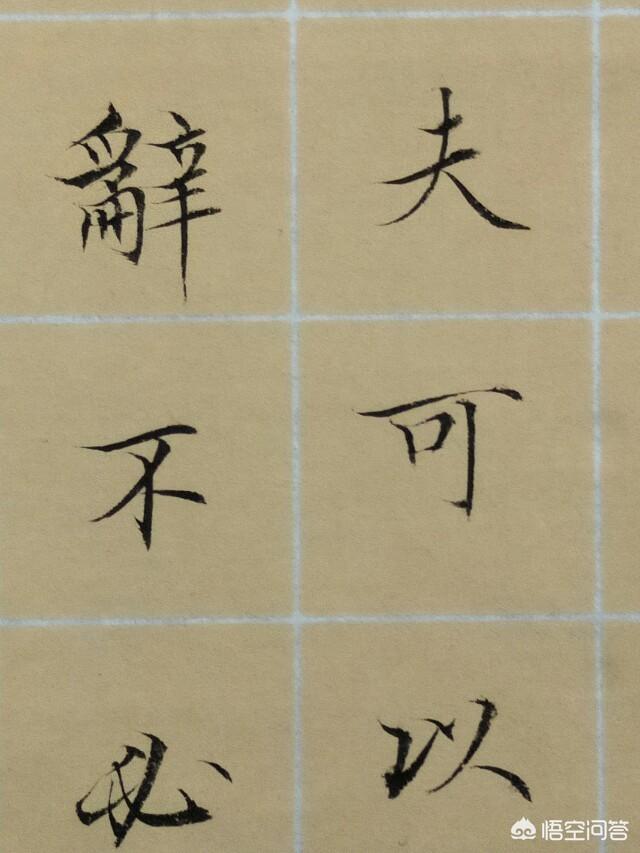 夫可以
辭不必
悟空问答